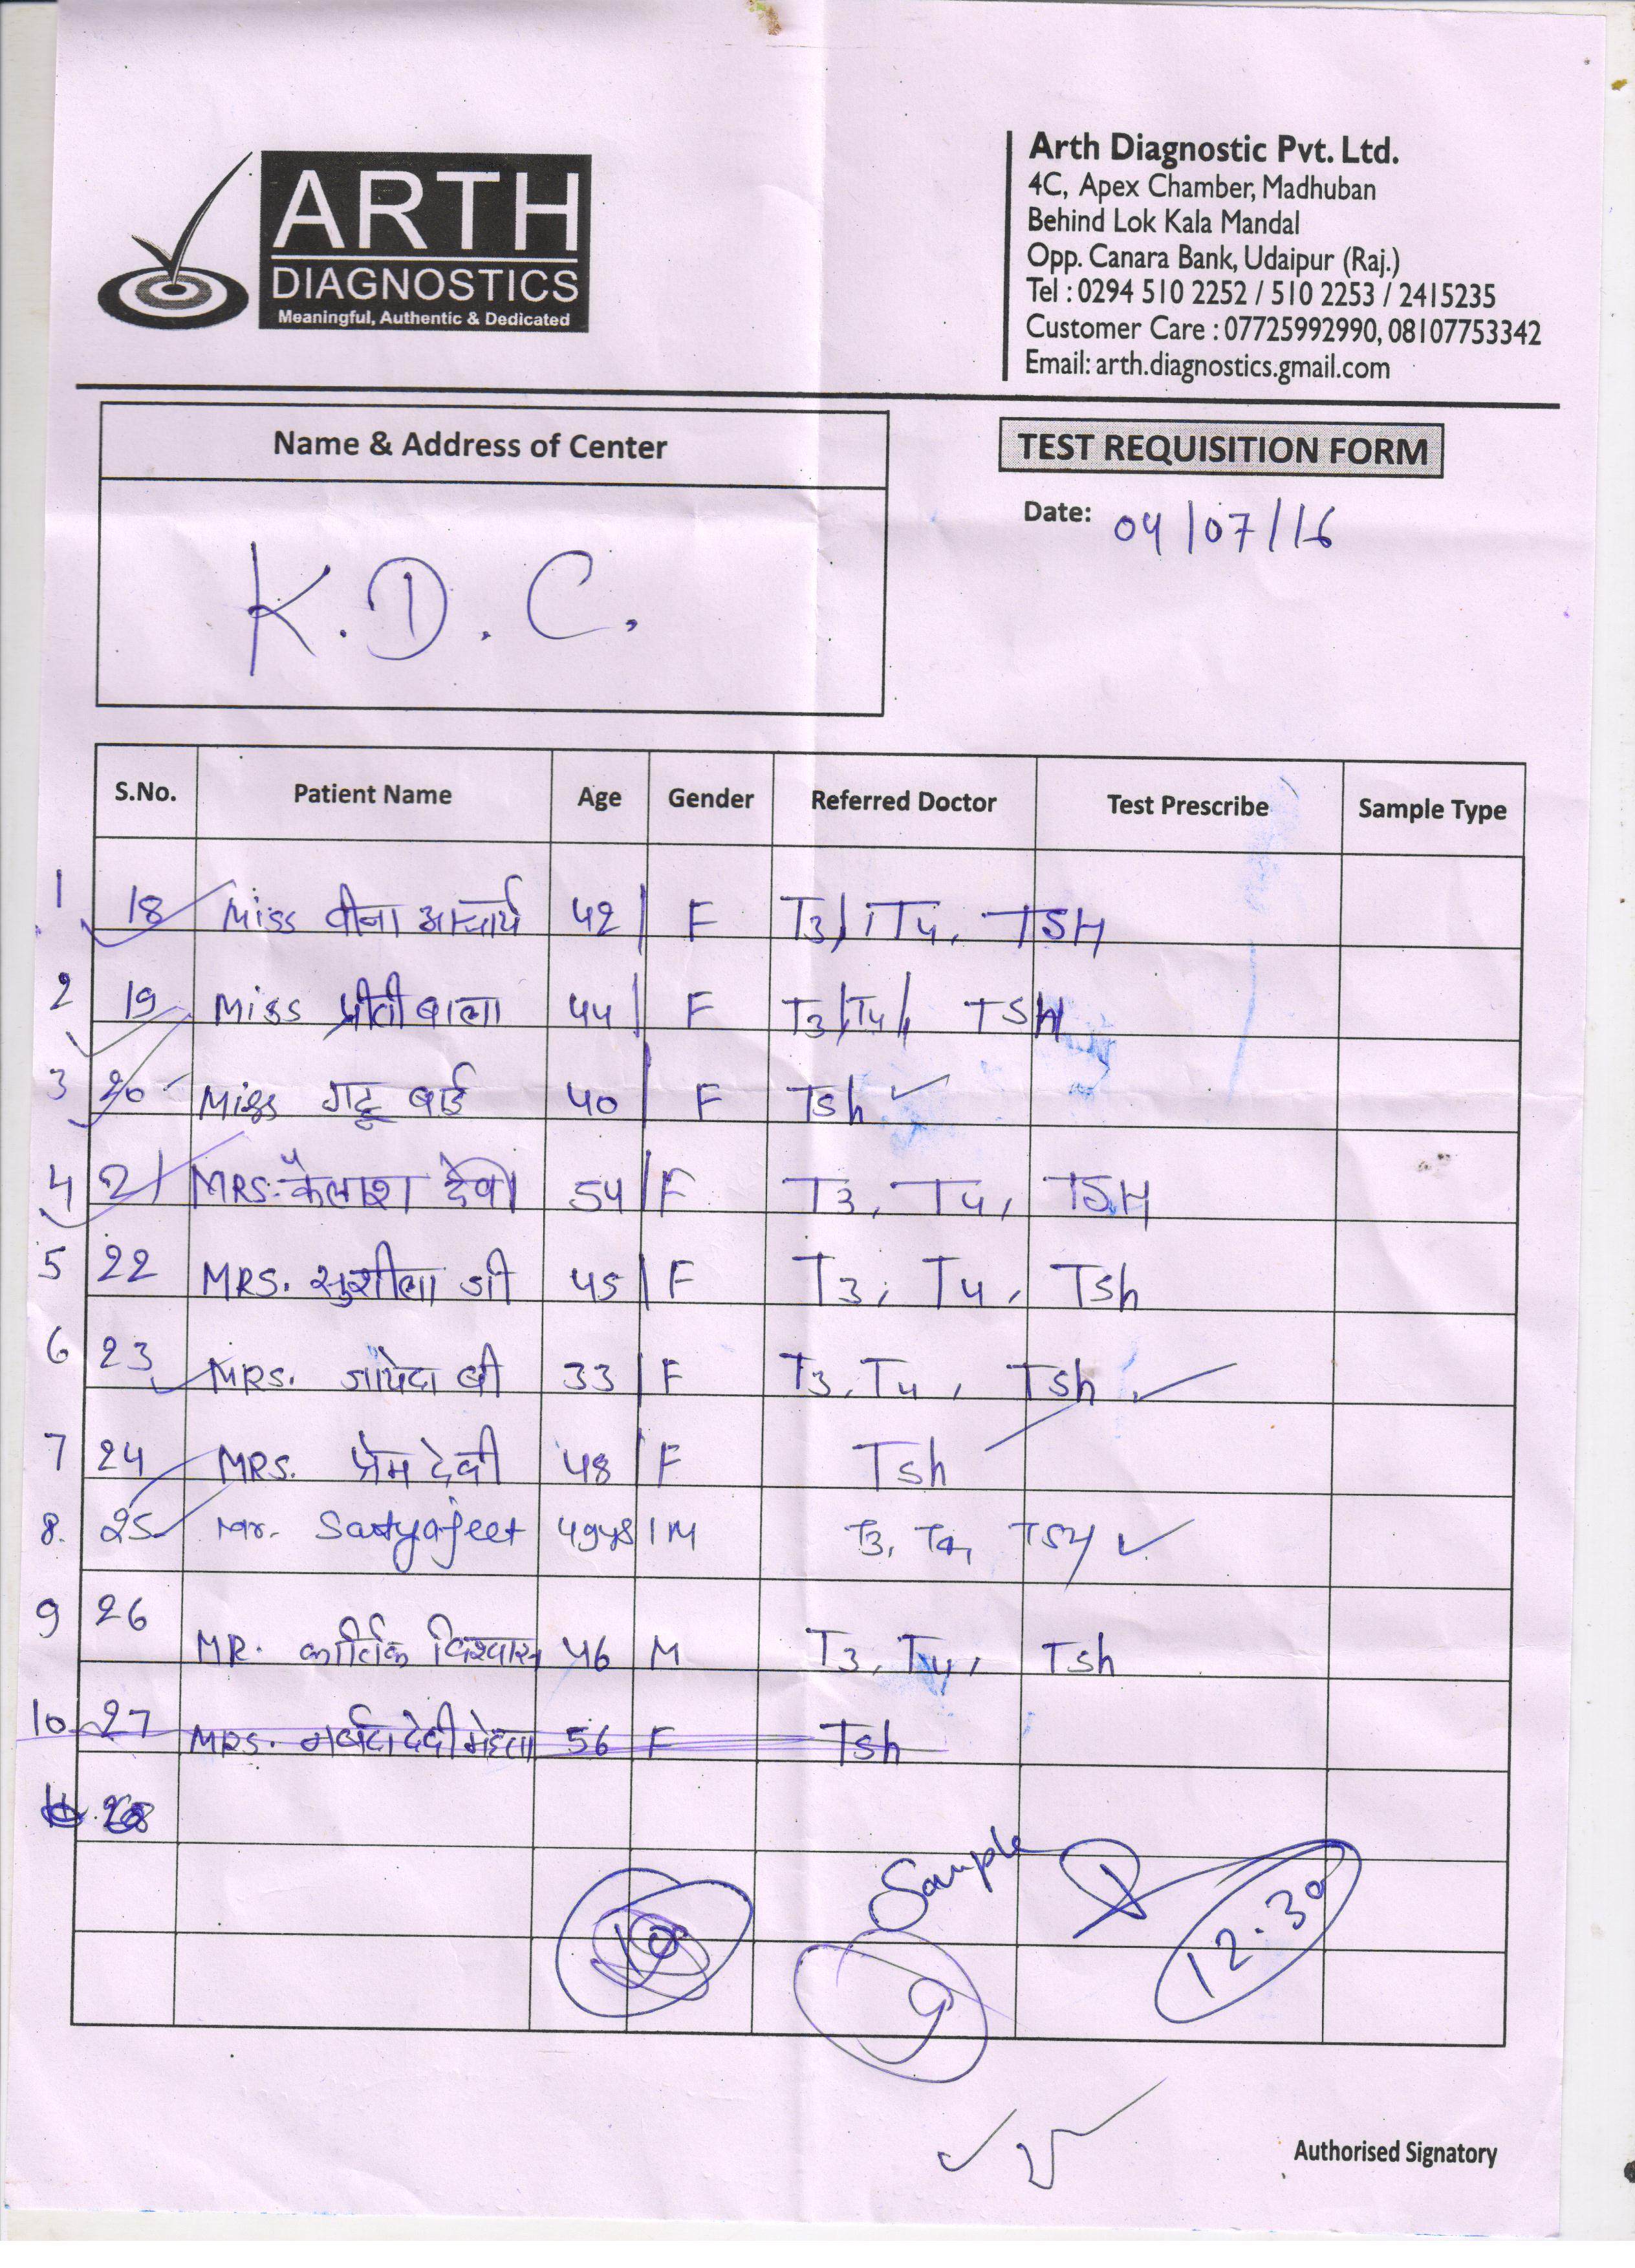 ARTH
DIAGNOSTICS
Meaningful, Authentic & Dedicated
Arth Diagnostic Pvt. Ltd.
4C, Apex Chamber, Madhuban
Behind Lok Kala Mandal
Opp. Canara Bank, Udaipur (Raj.)
Tel : 0294 510 2252 / 510 2253 / 2415235
Customer Care : 07725992990, 08107753342
Email: arth.diagnostics.gmail.com
Name & Address of Center
TEST REQUISITION FORM
Date: 04/07/16
K. D. C.
S.No. Patient Name Age Gender Referred Doctor Test Prescribe Sample Type
1 18 Miss वीना आचार्य 42 | F T3 / T4, TSH
2 19 Miss प्रीती बाला 44 | F T3 / T4 / TSH
3 20 Miss गट्टू बाई 40 | F Tsh
4 21 MRS. कैलाश देवी 54 | F T3, T4, TSH
5 22 MRS. सुशीला जी 45 | F T3, T4, Tsh
6 23 MRS. बी 33 | F T3, T4, Tsh
7 24 MRS. प्रेम देवी 48 | F Tsh
8. 25 Mr. Satyajeet 49 | M T3, T4, TSH
9 26 MR. कार्तिक विश्वास 46 M T3, T4, Tsh
10 27 MRS. देवी 56 F Tsh
28
Sample
10
9
12.30
Authorised Signatory